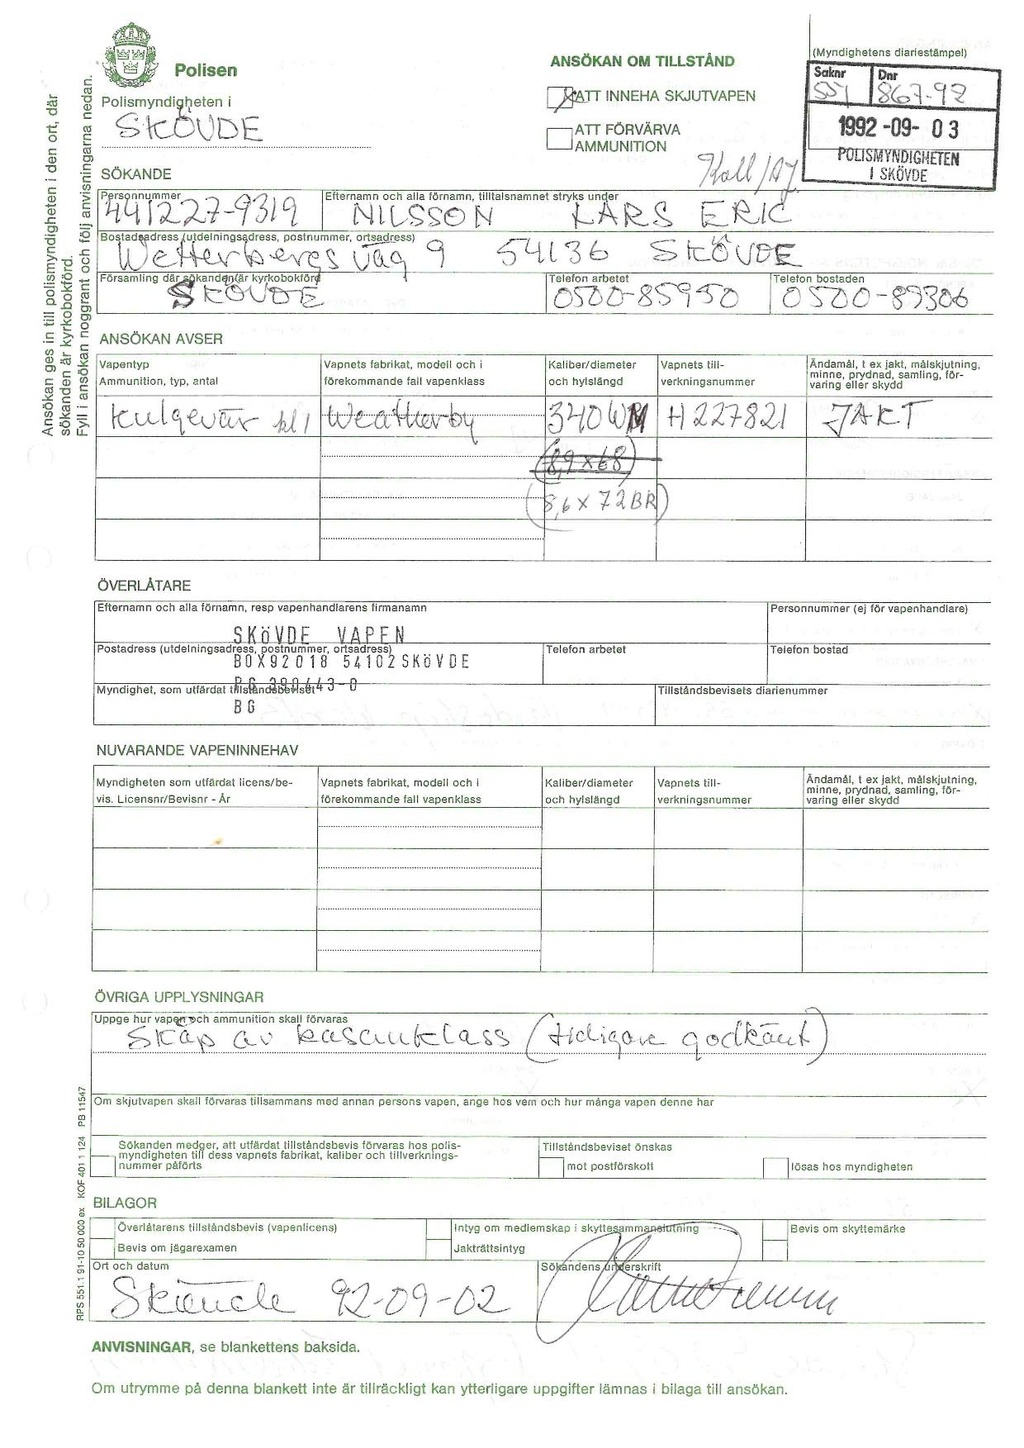 Polisen
Polismyndigheten i
SKÖVDE
ANSÖKAN OM TILLSTÅND
ATT INNEHA SKJUTVAPEN
ATT FÖRVÄRVA
AMMUNITION
(Myndighetens diariestämpel)
Saknr Dnr
551 867-92
1992-09-03
POLISMYNDIGHETEN
I SKÖVDE
Ansökan ges in till polismyndigheten i den ort, där
sökanden är kyrkobokförd.
Fyll i ansökan noggrant och följ anvisningarna nedan.
SÖKANDE
Personnummer
441227-9319
Efternamn och alla förnamn, tilltalsnamnet stryks under
NILSSON LARS ERIC
Bostadsadress (utdelningsadress, postnummer, ortsadress)
Wetterbergs väg 9 54136 SKÖVDE
Församling där sökanden är kyrkobokförd
SKÖVDE
Telefon arbetet
0500-85950
Telefon bostaden
0500-89306
ANSÖKAN AVSER
Vapentyp
Ammunition, typ, antal
Vapnets fabrikat, modell och i
förekommande fall vapenklass
Kaliber/diameter
och hylslängd
Vapnets till-
verkningsnummer
Ändamål, t ex jakt, målskjutning,
minne, prydnad, samling, för-
varing eller skydd
Kulgevär kl 1 Weatherby 340 WM H227821 JAKT
(8,9 x 68)
(8,6 x 72 BR)
ÖVERLÅTARE
Efternamn och alla förnamn, resp vapenhandlarens firmanamn
SKÖVDE VAPEN
Personnummer (ej för vapenhandlare)
Postadress (utdelningsadress, postnummer, ortsadress)
BOX92018 54102 SKÖVDE
Telefon arbetet
Telefon bostad
Myndighet, som utfärdat tillståndsbeviset
PG 390443-0
BG
Tillståndsbevisets diarienummer
NUVARANDE VAPENINNEHAV
Myndigheten som utfärdat licens/be-
vis. Licensnr/Bevisnr - År
Vapnets fabrikat, modell och i
förekommande fall vapenklass
Kaliber/diameter
och hylslängd
Vapnets till-
verkningsnummer
Ändamål, t ex jakt, målskjutning,
minne, prydnad, samling, för-
varing eller skydd
ÖVRIGA UPPLYSNINGAR
Uppge hur vapen och ammunition skall förvaras
Skåp av kassunklass (tidigare godkänt)
Om skjutvapen skall förvaras tillsammans med annan persons vapen, ange hos vem och hur många vapen denne har
Sökanden medger, att utfärdat tillståndsbevis förvaras hos polis-
myndigheten till dess vapnets fabrikat, kaliber och tillverknings-
nummer påförts
Tillståndsbeviset önskas
mot postförskott
lösas hos myndigheten
BILAGOR
Överlåtarens tillståndsbevis (vapenlicens)
Intyg om medlemskap i skyttesammanslutning
Bevis om skyttemärke
Bevis om jägarexamen
Jakträttsintyg
Ort och datum
Skövde 92-09-02
Sökandens underskrift
RPS 551.1 91-10 50 000 ex KOF 401 1 124 PB 11547
ANVISNINGAR, se blankettens baksida.
Om utrymme på denna blankett inte är tillräckligt kan ytterligare uppgifter lämnas i bilaga till ansökan.